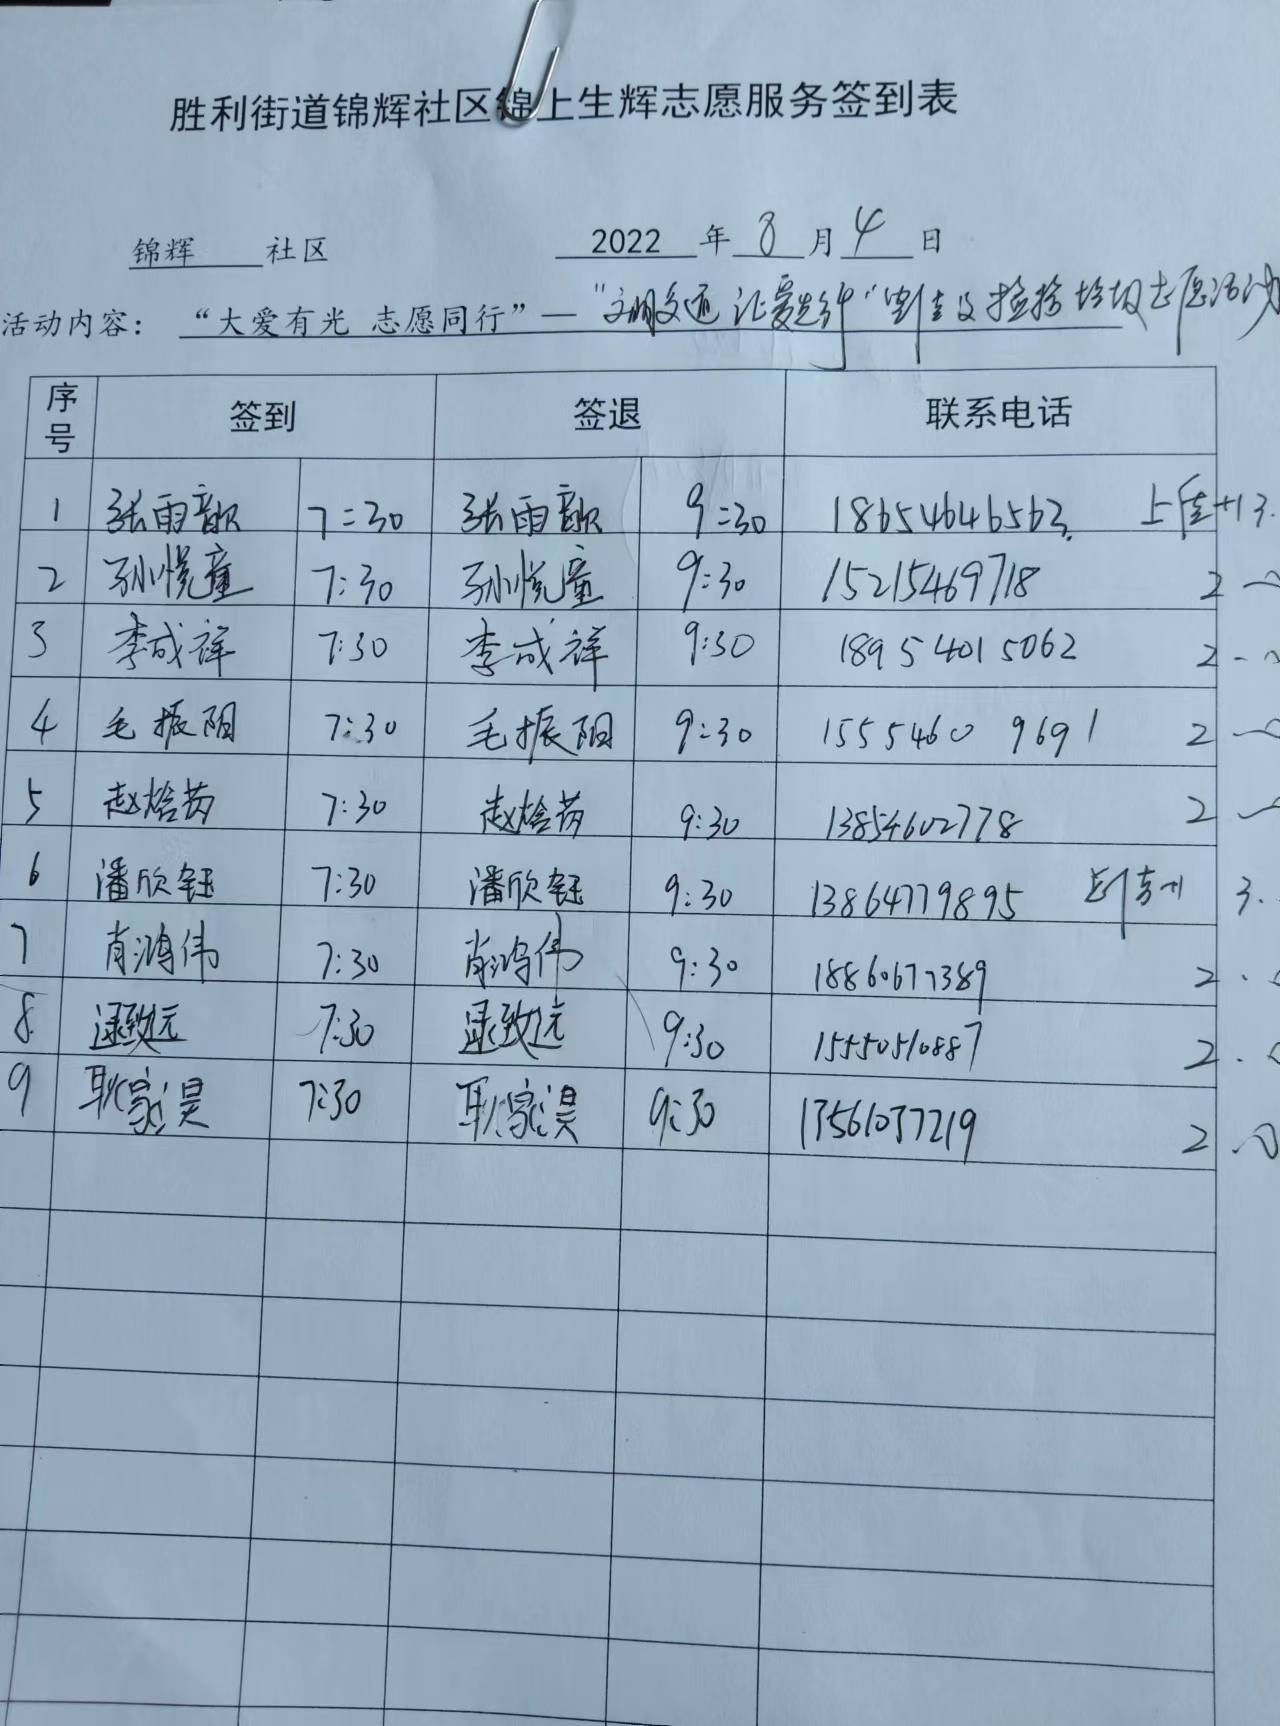 胜利街道锦辉社区锦上生辉志愿服务签到表
锦辉 社区 2022 年 8 月 4 日
活动内容： “大爱有光 志愿同行”— “文明交通 让爱先行” 宣传及捡拾垃圾志愿活动
序号 签到 签退 联系电话
1 张雨歆 7:30 张雨歆 9:30 18654646563 +1 3.
2 孙悦童 7:30 孙悦童 9:30 15215469718 2
3 李成祥 7:30 李成祥 9:30 18954015062 2
4 毛振阳 7:30 毛振阳 9:30 15554609691 2
5 赵焓芮 7:30 赵焓芮 9:30 13854602778 2
6 潘欣钰 7:30 潘欣钰 9:30 13864779895 +1 3.
7 肖鸿伟 7:30 肖鸿伟 9:30 18860677389 2
8 逯致远 7:30 逯致远 9:30 15550510887 2
9 耿家淏 7:30 耿家淏 9:30 13561037219 2